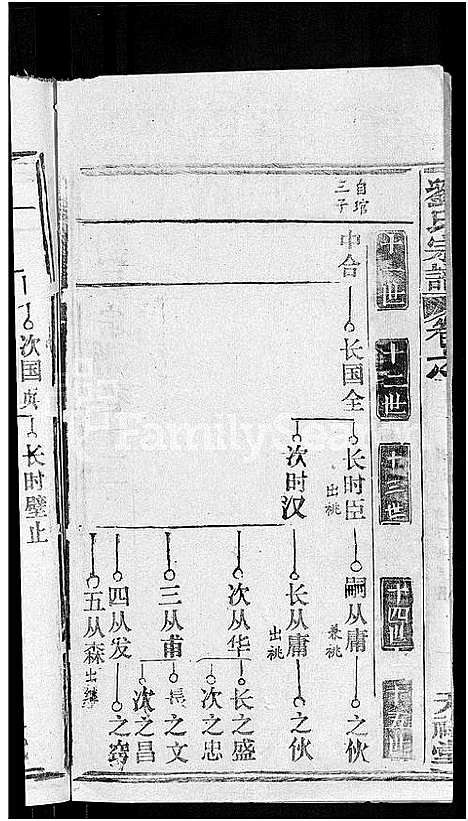 劉氏宗譜
卷
十二世
十三世
十四世
十五世
自琯
三子
中合
长国全
长时臣
出祧
嗣从庸
兼祧
之伙
次时汉
长从庸
出祧
之伙
次从华
长之盛
次之忠
三从甫
长之文
次之昌
四从发
之窍
五从森
出继
次国真
长时璧止
FamilySea